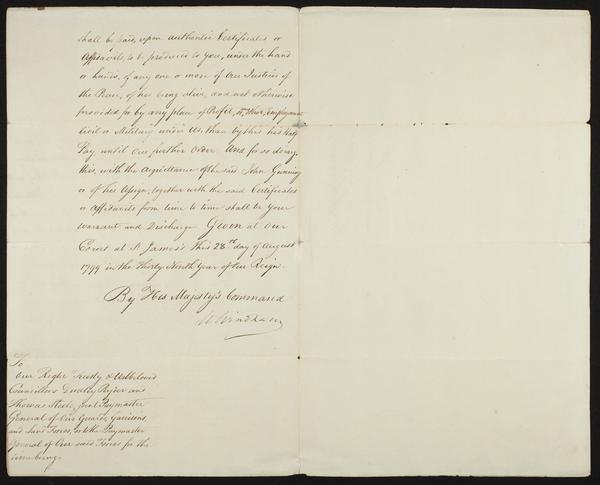 shall be paid, upon authentic Certificates or
Affidavits, to be produced to you, under the hand
or hands, of any one or more of Our Justices of
the Peace, of his being alive, and not otherwise
provided for by any place of Profit, or Employment
Civil or Military under Us, than by this his Half
Pay until Our further Order. And for so doing
this, with the Acquittance of the said John Gunning
or of his Assign, together with the said Certificates
or Affidavits from time to time shall be your
Warrant and Discharge Given at Our
Court at St. James's this 28th day of August
1799 in the Thirty Ninth Year of Our Reign.
By His Majesty's Command
W Windham
To
Our Right Trusty & Wellbeloved
Councillors Dudley Ryder and
Thomas Steele, Joint Paymaster
General of Our Guards, Garrisons,
and Land Forces, or to the Paymaster
General of Our said Forces for the
time being.